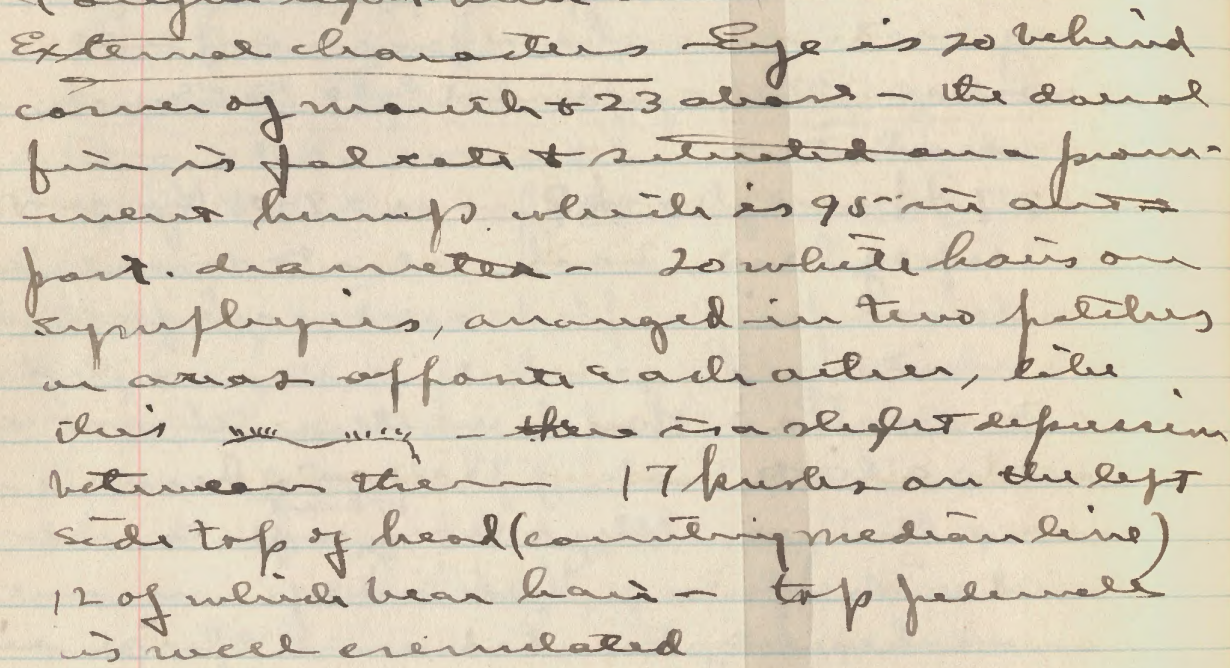 External characters Eye is 20 behind
corner of mouth & 23 above - the dorsal
fin is falcate & situated on a prom-
inent hump which is 95 in ant -
post. diameter - 20 white hairs on
symphysis, arranged in two patches
or areas opposite each other, like
this - there is a slight depression
between them 17 knobs on the left
side top of head (counting median line)
12 of which bear hair - top peduncle
is well crenulated